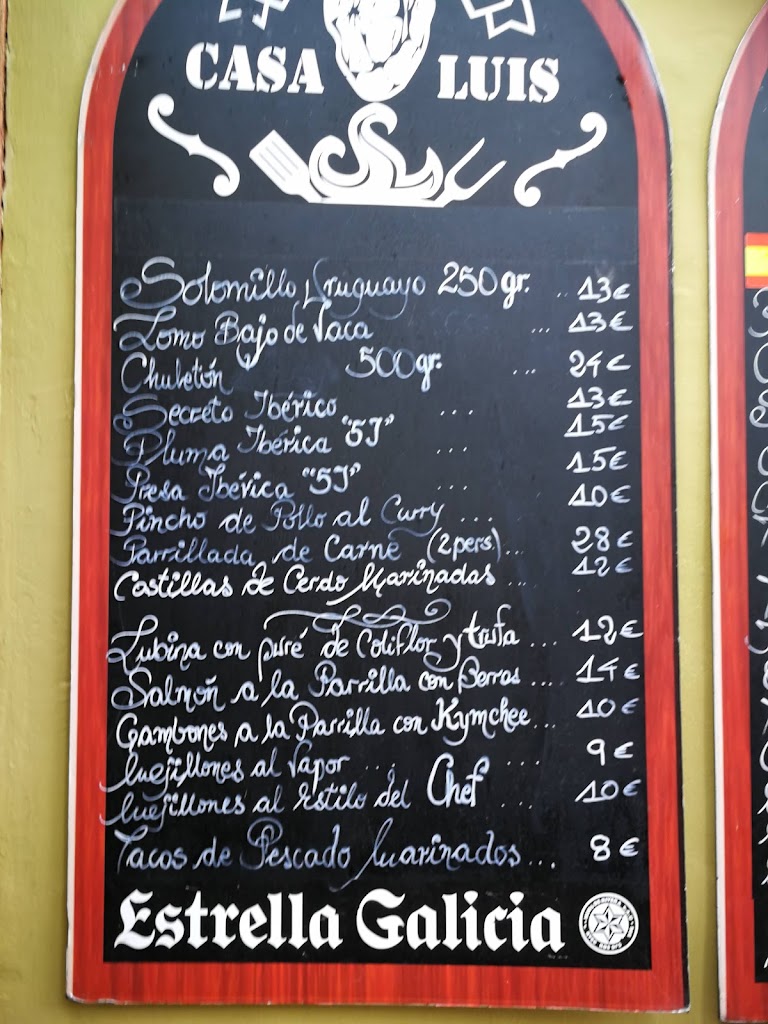 CASA LUIS
Solomillo Uruguayo 250gr. .. 13€
Lomo Bajo de Vaca ... 13€
Chuletón 500gr. ... 24€
Secreto Ibérico ... 13€
Pluma Ibérica "5J" ... 15€
Presa Ibérica "5J" ... 15€
Pincho de Pollo al Curry ... 10€
Parrillada de Carne (2pers.)... 28€
Costillas de Cerdo Marinadas ... 12€
Lubina con puré de Coliflor y trufa ... 12€
Salmoñ a la Parrilla con Berros .... 14€
Gambones a la Parrilla con Kymchee... 10€
Mejillones al Vapor ... ... 9€
Mejillones al Estilo del Chef .... 10€
Tacos de Pescado Marinados... 8€
Estrella Galicia